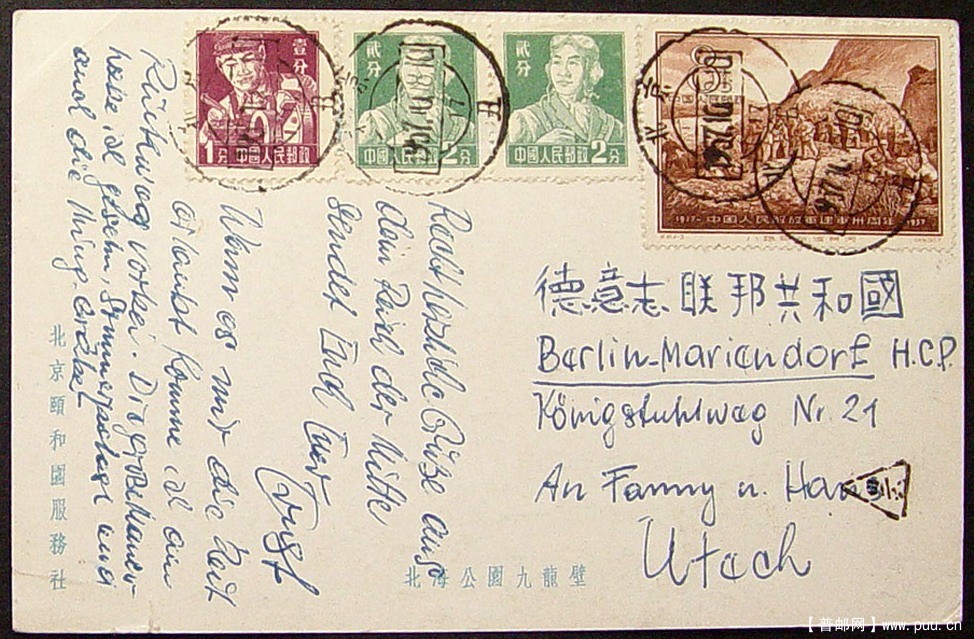 壹分
1分 中国人民邮政
贰分
中国人民邮政 2分
贰分
中国人民邮政 2分
1927- 中国人民解放军建军卅周年 1957
Recht herzliche Grüße aus
dem Reich der Mitte
sendet Euch Euer
Wenn es mir die Zeit
erlaubt komme ich am
Rückweg vorbei. Die große Mauer
habe ich gesehn, Sommerpalast und
und die Minggräber
德意志联邦共和國
Berlin-Mariendorf H.C.P.
Königstuhlweg Nr. 21
An Fanny u. Hans
Utech
北京頤和園服務社
北海公園九龍壁
【普邮网】www.puu.cn